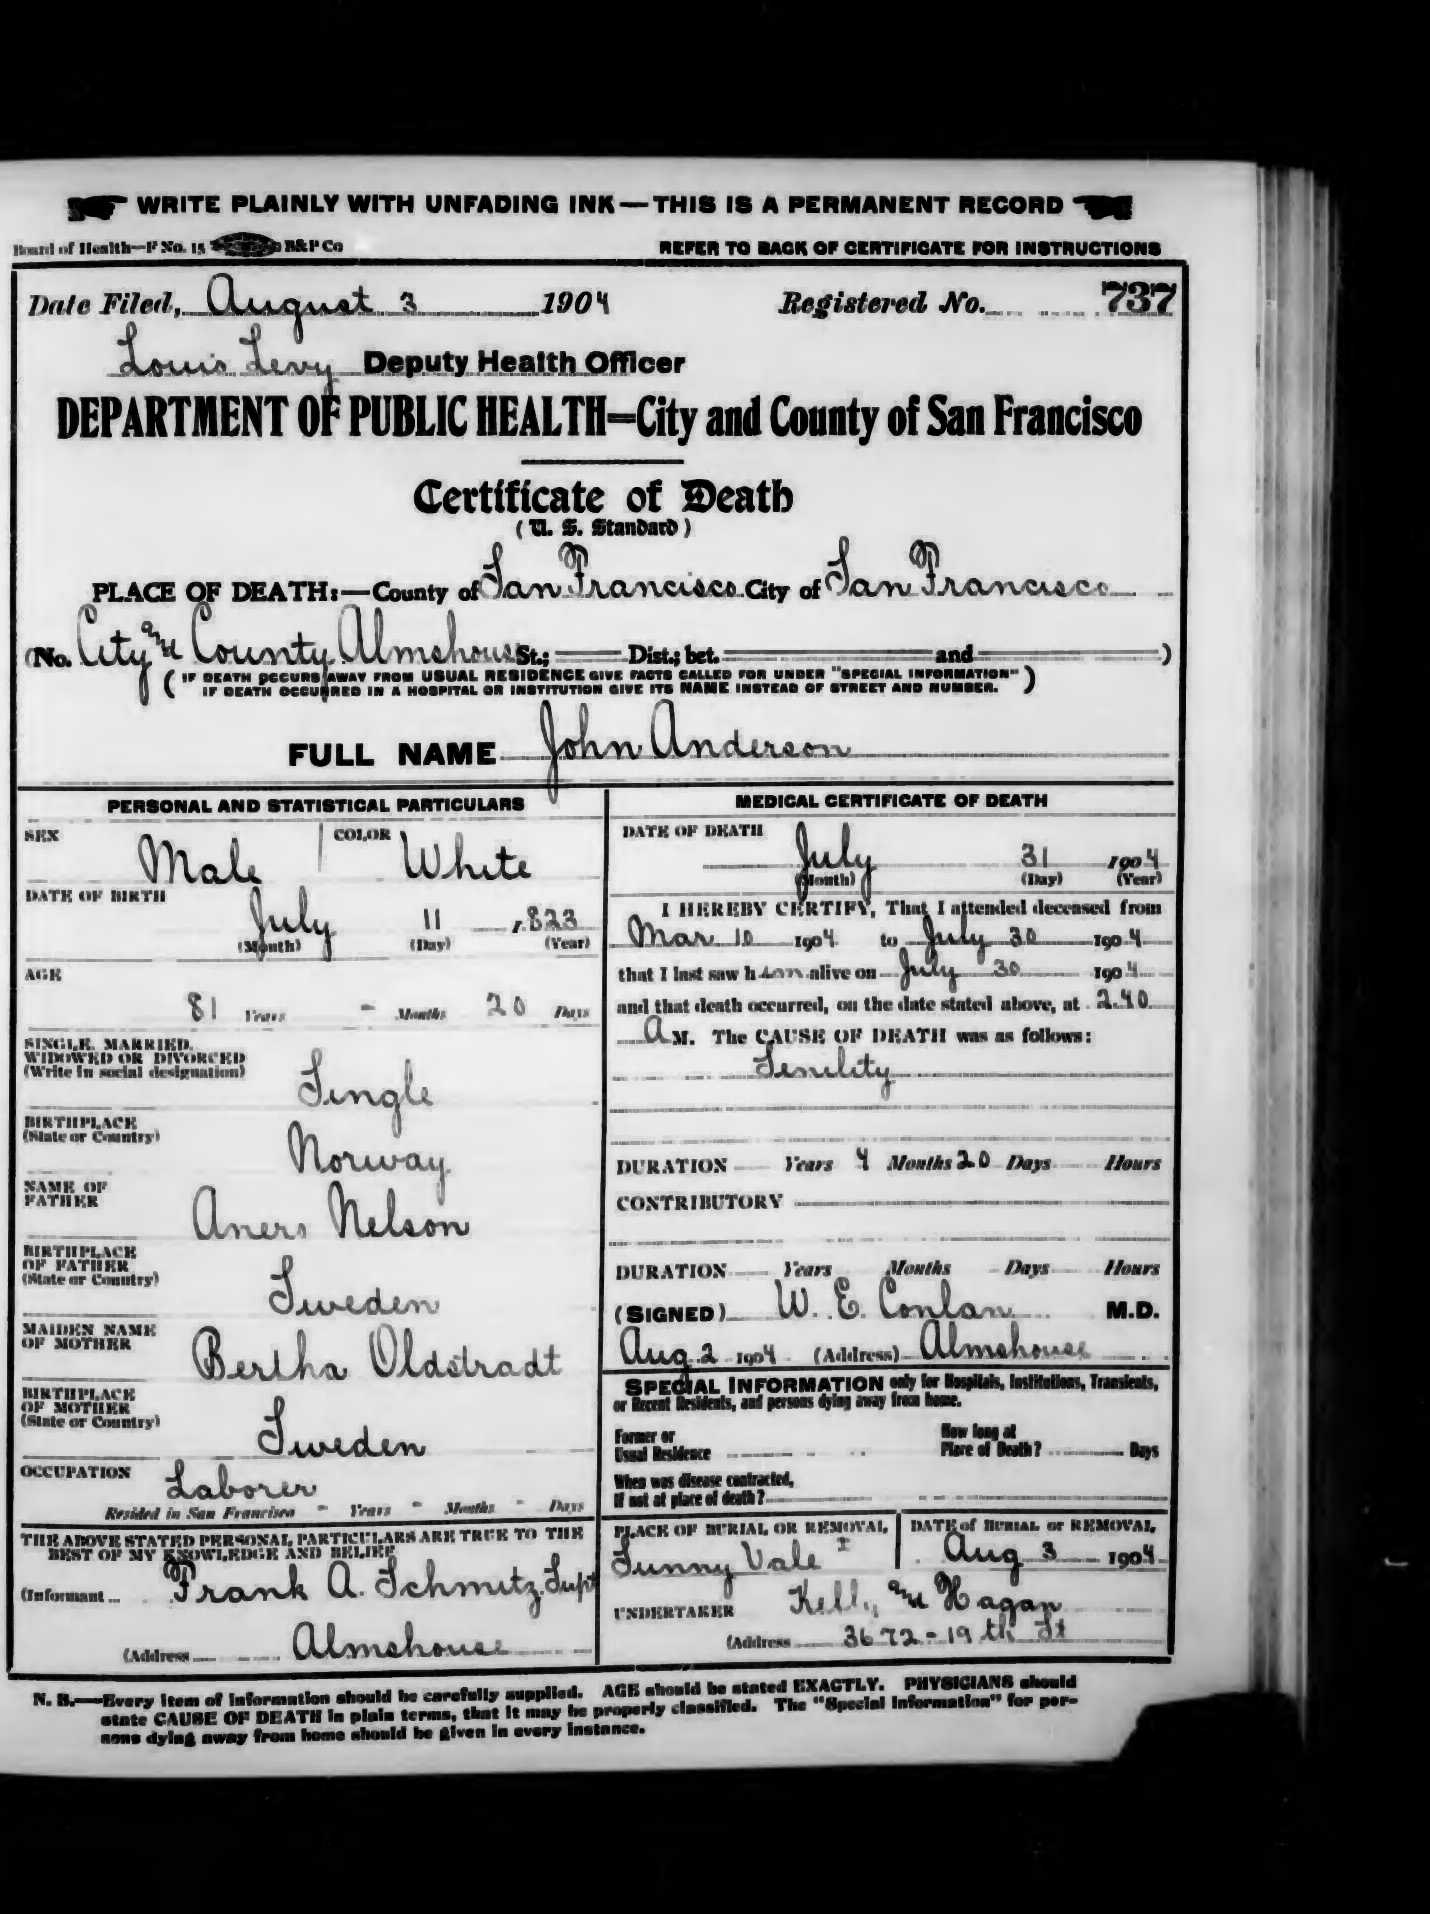 WRITE PLAINLY WITH UNFADING INK—THIS IS A PERMANENT RECORD
Board of Health—F No. 15 B&P Co REFER TO BACK OF CERTIFICATE FOR INSTRUCTIONS
Date Filed, August 3 1904 Registered No. 737
Louis Levy Deputy Health Officer
DEPARTMENT OF PUBLIC HEALTH=City and County of San Francisco
Certificate of Death
(U. S. Standard)
PLACE OF DEATH:—County of San Francisco City of San Francisco
(No. City and County Almshouse St.; Dist.; bet. and )
(IF DEATH OCCURS AWAY FROM USUAL RESIDENCE GIVE FACTS CALLED FOR UNDER "SPECIAL INFORMATION"
IF DEATH OCCURRED IN A HOSPITAL OR INSTITUTION GIVE ITS NAME INSTEAD OF STREET AND NUMBER.)
FULL NAME John Anderson
PERSONAL AND STATISTICAL PARTICULARS
SEX Male COLOR White
DATE OF BIRTH
July 11 1823
(Month) (Day) (Year)
AGE
81 Years - Months 20 Days
SINGLE, MARRIED,
WIDOWED OR DIVORCED
(Write in social designation)
Single
BIRTHPLACE
(State or Country)
Norway
NAME OF
FATHER
Aners Nelson
BIRTHPLACE
OF FATHER
(State or Country)
Sweden
MAIDEN NAME
OF MOTHER
Bertha Oldstradt
BIRTHPLACE
OF MOTHER
(State or Country)
Sweden
OCCUPATION Laborer
Resided in San Francisco - Years - Months - Days
THE ABOVE STATED PERSONAL PARTICULARS ARE TRUE TO THE
BEST OF MY KNOWLEDGE AND BELIEF
(Informant Frank A. Schmitz. Supt
(Address Almshouse
MEDICAL CERTIFICATE OF DEATH
DATE OF DEATH
July 31 1904
(Month) (Day) (Year)
I HEREBY CERTIFY, That I attended deceased from
Mar 10 1904 to July 30 1904
that I last saw him alive on July 30 1904
and that death occurred, on the date stated above, at 2.40
A M. The CAUSE OF DEATH was as follows:
Senility
DURATION Years 4 Months 20 Days Hours
CONTRIBUTORY
DURATION Years Months Days Hours
(SIGNED) W. E. Conlan M.D.
Aug 2 1904 (Address) Almshouse
SPECIAL INFORMATION only for Hospitals, Institutions, Transients,
or Recent Residents, and persons dying away from home.
Former or
Usual Residence
How long at
Place of Death? Days
When was disease contracted,
If not at place of death?
PLACE OF BURIAL OR REMOVAL
Sunny Vale
DATE of BURIAL or REMOVAL
Aug 3 1904
UNDERTAKER Kelly and Hagan
(Address 3672-19th St
N. B.—Every item of information should be carefully supplied. AGE should be stated EXACTLY. PHYSICIANS should
state CAUSE OF DEATH in plain terms, that it may be properly classified. The "Special Information" for per-
sons dying away from home should be given in every instance.